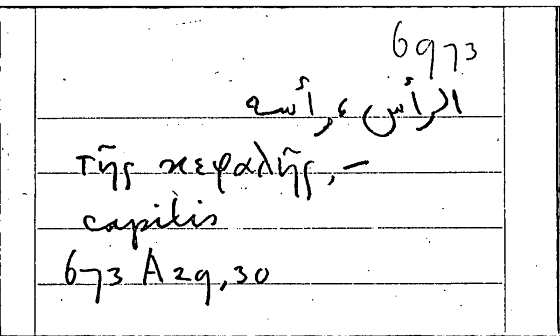 6973
الرأس، رأسه
τῆς κεφαλῆς, –
capitis
673 A 29, 30